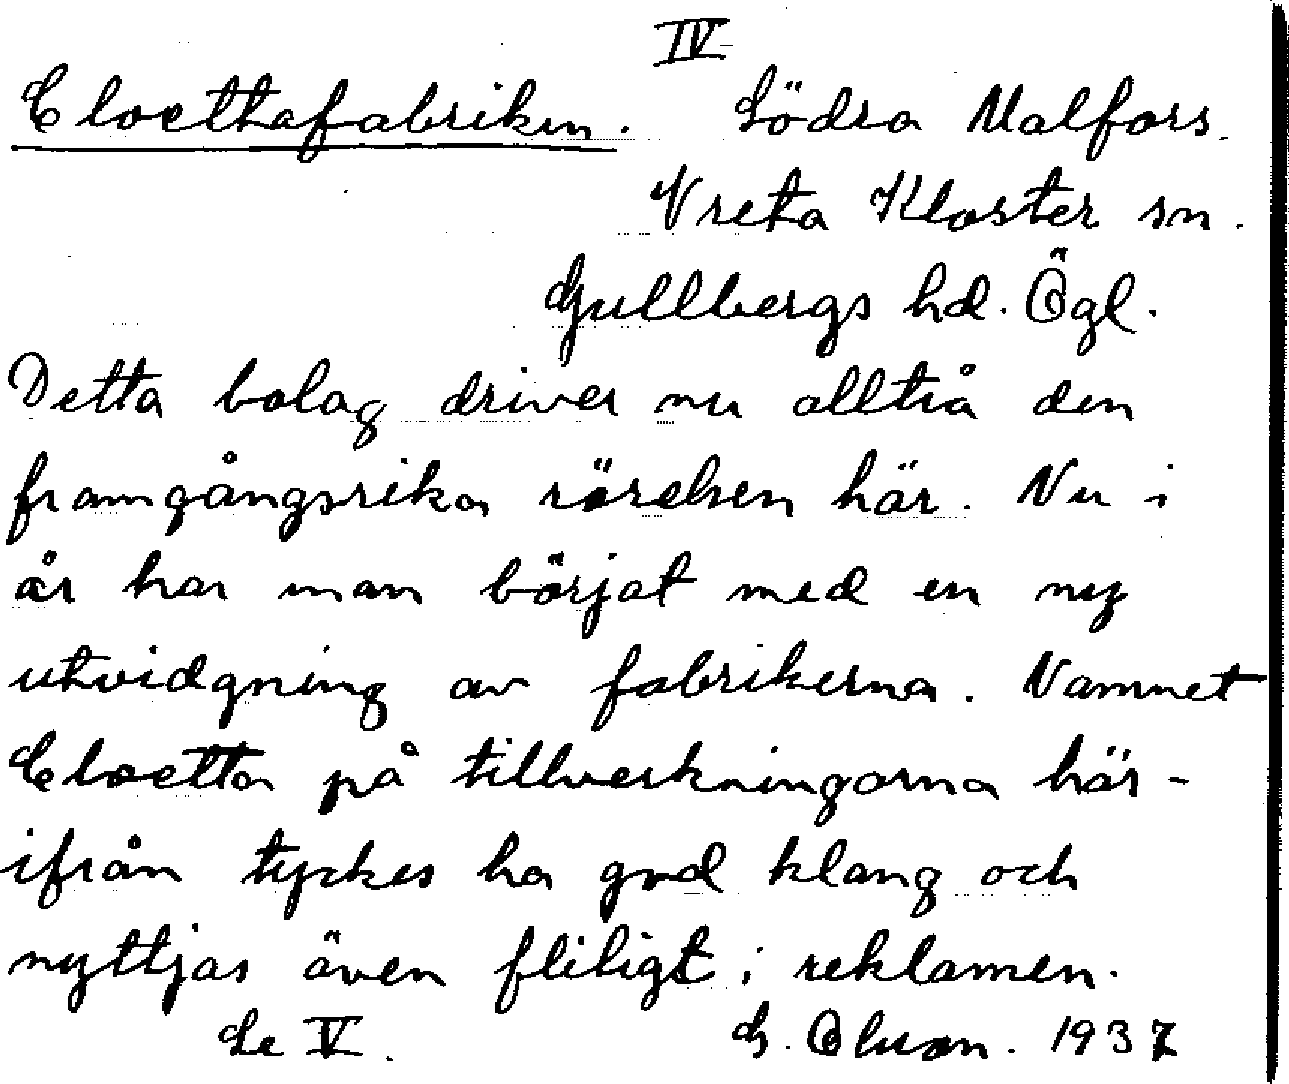 IV
Cloettafabriken. Södra Malfors.
Vreta Kloster sn.
Gullbergs hd. Ögl.
Detta bolag driver nu alltså den
framgångsrika rörelsen här. Nu i
år har man börjat med en ny
utvidgning av fabrikerna. Namnet
Cloetta på tillverkningarna här-
ifrån tyckes ha god klang och
nyttjas även flitigt i reklamen.
Se V. G. Olsson. 1937